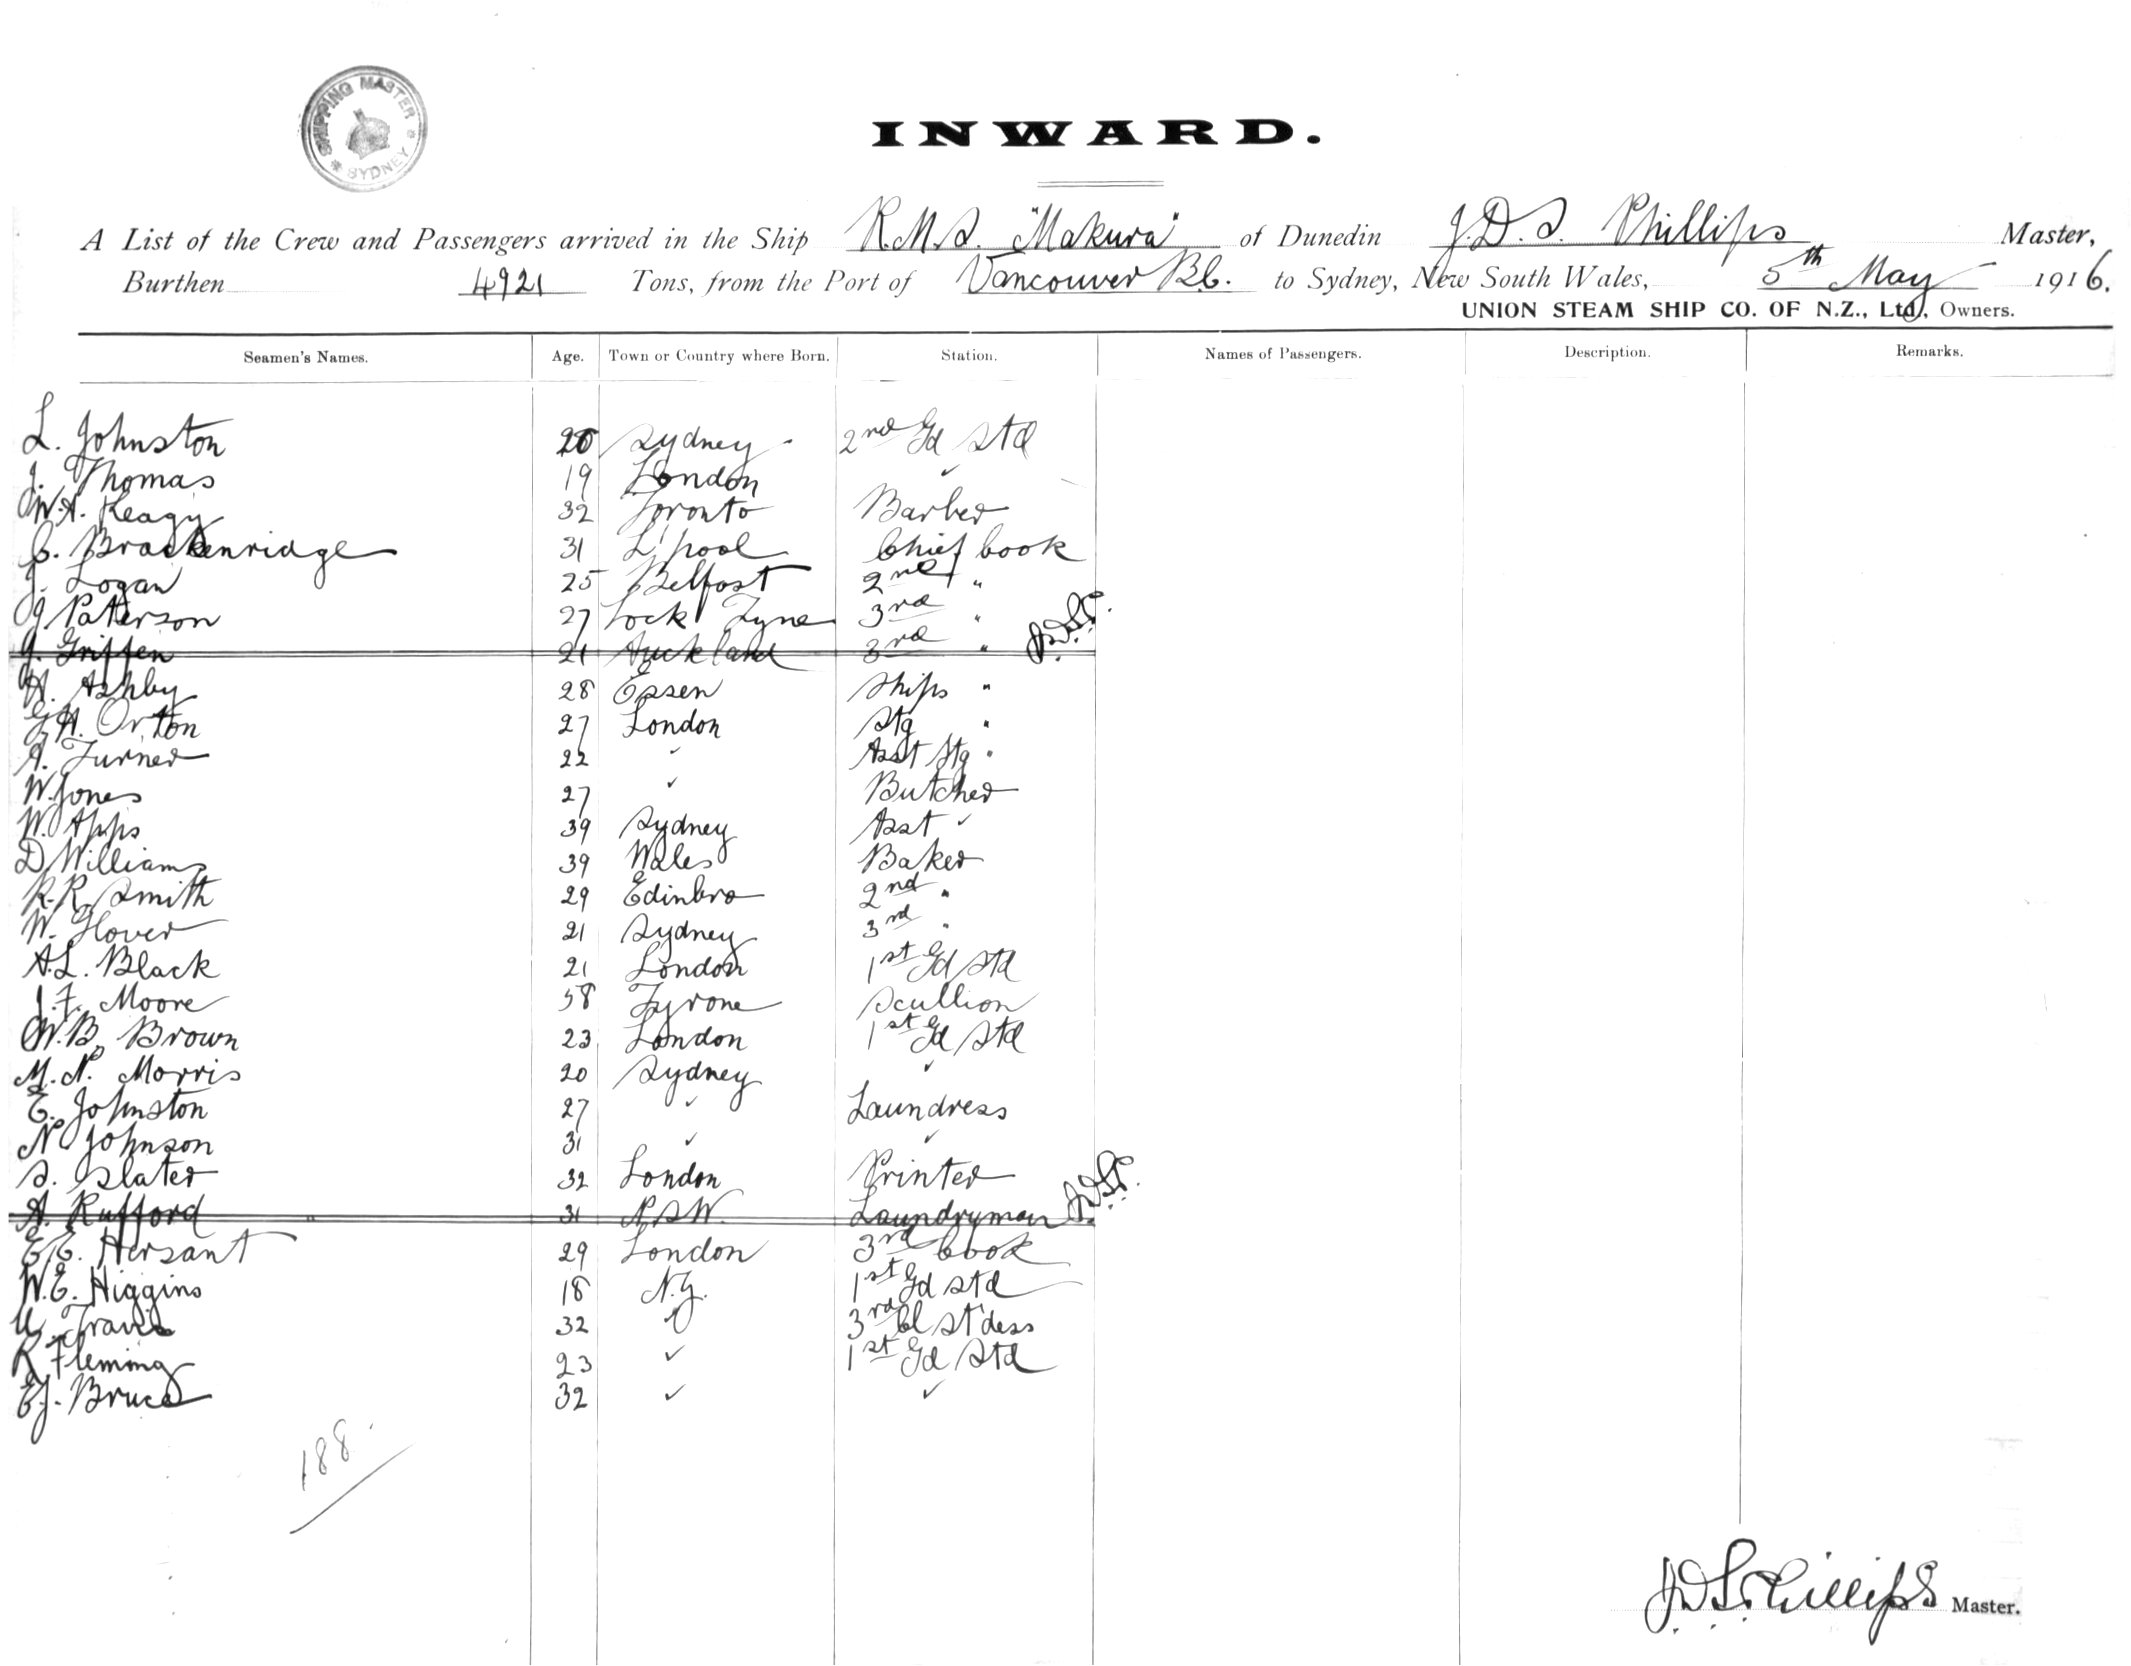 SHIPPING MASTER
SYDNEY
INWARD.
A List of the Crew and Passengers arrived in the Ship R.M.S. "Makura" of Dunedin J.D.S. Phillips Master,
Burthen 4921 Tons, from the Port of Vancouver B.C. to Sydney, New South Wales, 5th May 1916.
UNION STEAM SHIP CO. OF N.Z., Ltd., Owners.
Seamen's Names. Age. Town or Country where Born. Station. Names of Passengers. Description. Remarks.
L. Johnston 26 Sydney 2nd Gd Std
J. Thomas 19 London ✓
W.A. Keagy 32 Toronto Barber
C. Brackenridge 31 L'pool Chief Cook
J. Logan 25 Belfast 2nd "
J Paterson 27 Lock Fyne 3rd "
J. Griffen 21 Auckland 3rd " J.D.S.P.
H. Ashby 28 Essen Ships "
G.H. Orton 27 London Stg "
A. Turner 22 ✓ Asst Stg "
W. Jones 27 ✓ Butcher
W. Apps 39 Sydney Asst ✓
D Williams 39 Wales Baker
R.R. Smith 29 Edinbro 2nd "
W. Glover 21 Sydney 3rd "
A.L. Black 21 London 1st Gd Std
J.F. Moore 58 Tyrone Scullion
W.B. Brown 23 London 1st Gd Std
M.N. Morris 20 Sydney ✓
E. Johnston 27 ✓ Laundress
N Johnson 31 ✓ ✓
S. Slater 32 London Printer
A. Rufford 31 N.S.W. Laundryman J.D.S.P.
E.E. Hersant 29 London 3rd Cook
W.E. Higgins 18 N.Z. 1st Gd Std
Travis 32 3rd Cl St'dess
R Fleming 23 ✓ 1st Gd Std
E.J. Bruce 32 ✓ ✓
188.
J.D.S. Phillips Master.